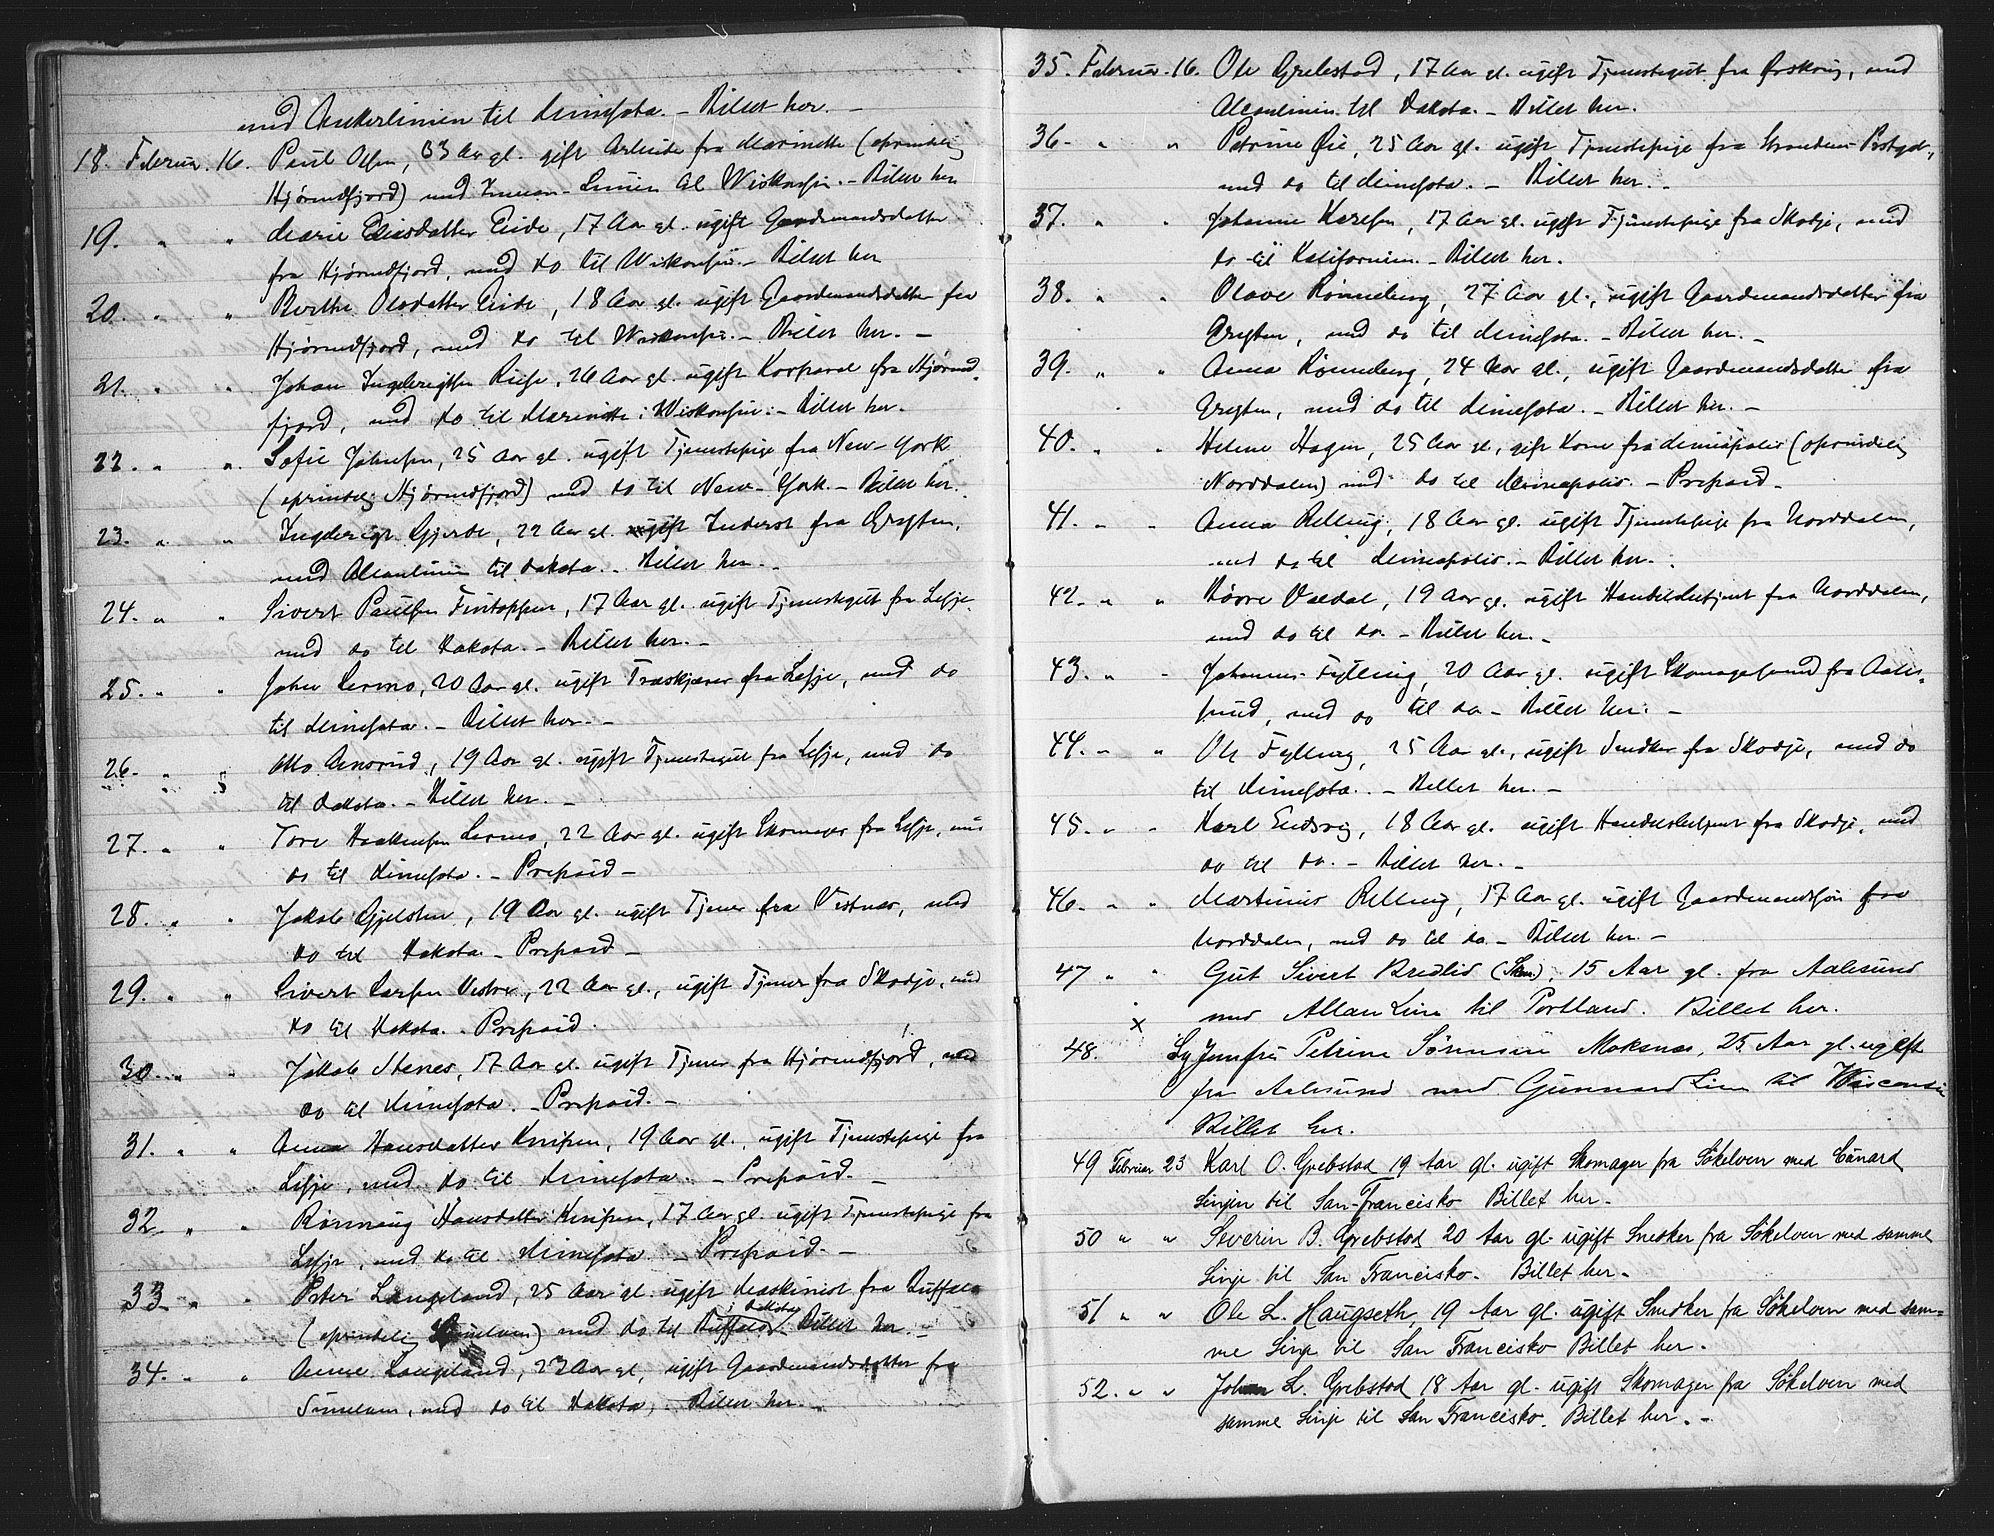 med Ankerlinien til Minnesota. - Billet her. -
18. Februar. 16. Paul Olsen, 33 Aar gl. gift Arbeider fra Marinette (oprindelig
Hjørundfjord) med Inman-Linien til Wiskonsin. - Billet her
19. " " Marie Eliasdatter Eide, 17 Aar gl. ugift Gaardmandsdatter
fra Hjørundfjord, med do til Wiskonsin. - Billet her
20. " " Berthe Olsdatter Eide, 18 Aar gl. ugift Gaardmandsdatter fra
Hjørundfjord, med do til Wiskonsin. - Billet her. -
21. " " Johan Ingebrigtsen Riise, 26 Aar gl. ugift Korporal fra Hjørund-
fjord, med do til Marinette i Wiskonsin. - Billet her.
22. " " Sofie Johnsen, 25 Aar gl. ugift Tjenestepige fra New-York
(oprindelig Hjørundfjord) med do til New-York. - Billet her.
23. " " Ingebrigt Gjerde, 22 Aar gl. ugift Inderst fra Grytten,
med Allanlinien til Dakota. - Billet her. -
24. " " Sivert Paulsen 17 Aar gl. ugift Tjenestegut fra Lesje
med do til Dakota. - Billet her. -
25. " " John Lermo, 20 Aar gl. ugift Træskjærer fra Lesje, med do
til Minnesota. - Billet her. -
26. " " Otto 19 Aar gl. ugift Tjenestegut fra Lesje, med do
til Dakota. - Billet her. -
27. " " Tore Haakensen Lermo, 22 Aar gl. ugift Skomager fra Lesje, med
do til Minnesota. - Prepaid -
28. " " Jakob Gjelsten, 19 Aar gl. ugift Tjener fra Vestnæs, med
do til Dakota - Prepaid -
29. " " Sivert Larsen 22 Aar gl., ugift Tjener fra Skodje, med
do til Dakota. - Prepaid.
30. " " Jakob Stenes, 17 Aar gl. ugift Tjener fra Hjørundfjord, med
do til Minnesota. - Prepaid. -
31. " " Anna Hansdatter 19 Aar gl., ugift Tjenestepige fra
Lesje, med do til Minnesota. - Prepaid. -
32 " " Rønnaug Hansdatter 17 Aar gl. ugift Tjenestepige fra
Lesje, med do til Minnesota - Prepaid. -
33 " " Peter Langeland, 25 Aar gl. ugift Maskinist fra Buffalo
(oprindelig med do til Buffalo, Dakota - Billet her. -
34. " " Anne Langeland, 23 Aar gl, ugift Gaardmandsdatter fra
med do til Dakota, - Billet her. -
35. Februar. 16. Ole Grebstad, 17 Aar gl. ugift Tjenestegut fra Ørskoug, med
Allanlinien til Dakota. - Billet her.
36. " " Petrine Øie, 25 Aar gl. ugift Tjenestepige fra Stranden Prstgd.,
med do til Minnesota. - Billet her. -
37. " " Johanne Karlsen, 17 Aar gl. ugift Tjenestepige fra Skodje, med
do til Kalifornien. - Billet her.
38. " " Olave Rønneberg, 27 Aar gl., ugift Gaardmandsdatter fra
Grytten, med do til Minnesota. - Billet her. -
39. " " Anna Rønneberg, 24 Aar gl., ugift Gaardmandsdatter fra
Grytten, med do til Minnesota. - Billet her. -
40. " " Helene Hagen, 25 Aar gl., gift Kone fra Minneapolis (oprindelig
Norddalen) med do til Minneapolis. - Prepaid -
41. " " Anna Relling, 18 Aar gl. ugift Tjenestepige fra Norddalen,
med do til Minneapolis. - Billet her. -
42. " " Valdal, 19 Aar gl. ugift Handelsbetjent fra Norddalen,
med do til do. - Billet her. -
43. " " Johannes Fylling, 20 Aar gl. ugift Skomagersvend fra Aale-
sund, med do til do - Billet her. -
44. " " Ole Fylling, 25 Aar gl., ugift Snedker fra Skodje, med do
til Minnesota. - Billet her. -
45. " " Karl Endsvig, 18 Aar gl. ugift Handelsbetjent fra Skodje, med
do til do. - Billet her. -
46. " " Martinus Relling, 17 Aar gl. ugift Gaardmandssøn fra
Norddalen, med do til do. - Billet her. -
47 " " Gut Sivert Bredlid 15 Aar gl. fra Aalesund
med Allan Line til Portland. Billet her.
x
48. Jomfru Petrine Sørensen Moksnes, 25 Aar gl. ugift
fra Aalesund med Gunnard Line til Wisconsin
Billet her.
49 Februar 23 Karl O. Grebstad 19 Aar gl. ugift Skomager fra Sökelven med Cunard
Linjen til San-Francisko Billet her. -
50 " " Severin B. Grebstad 20 Aar gl. ugift Snedker fra Sökelven med samme
Linje til San Francisko. Billet her. -
51 " " Ole L. Haugseth, 19 Aar gl. ugift Snedker fra Sökelven med sam-
me Linje til San Francisko Billet her. -
52. " " Johan L. Grebstad 18 Aar gl. ugift Skomager fra Sökelven med
samme Linje til San Francisko. Billet her. -